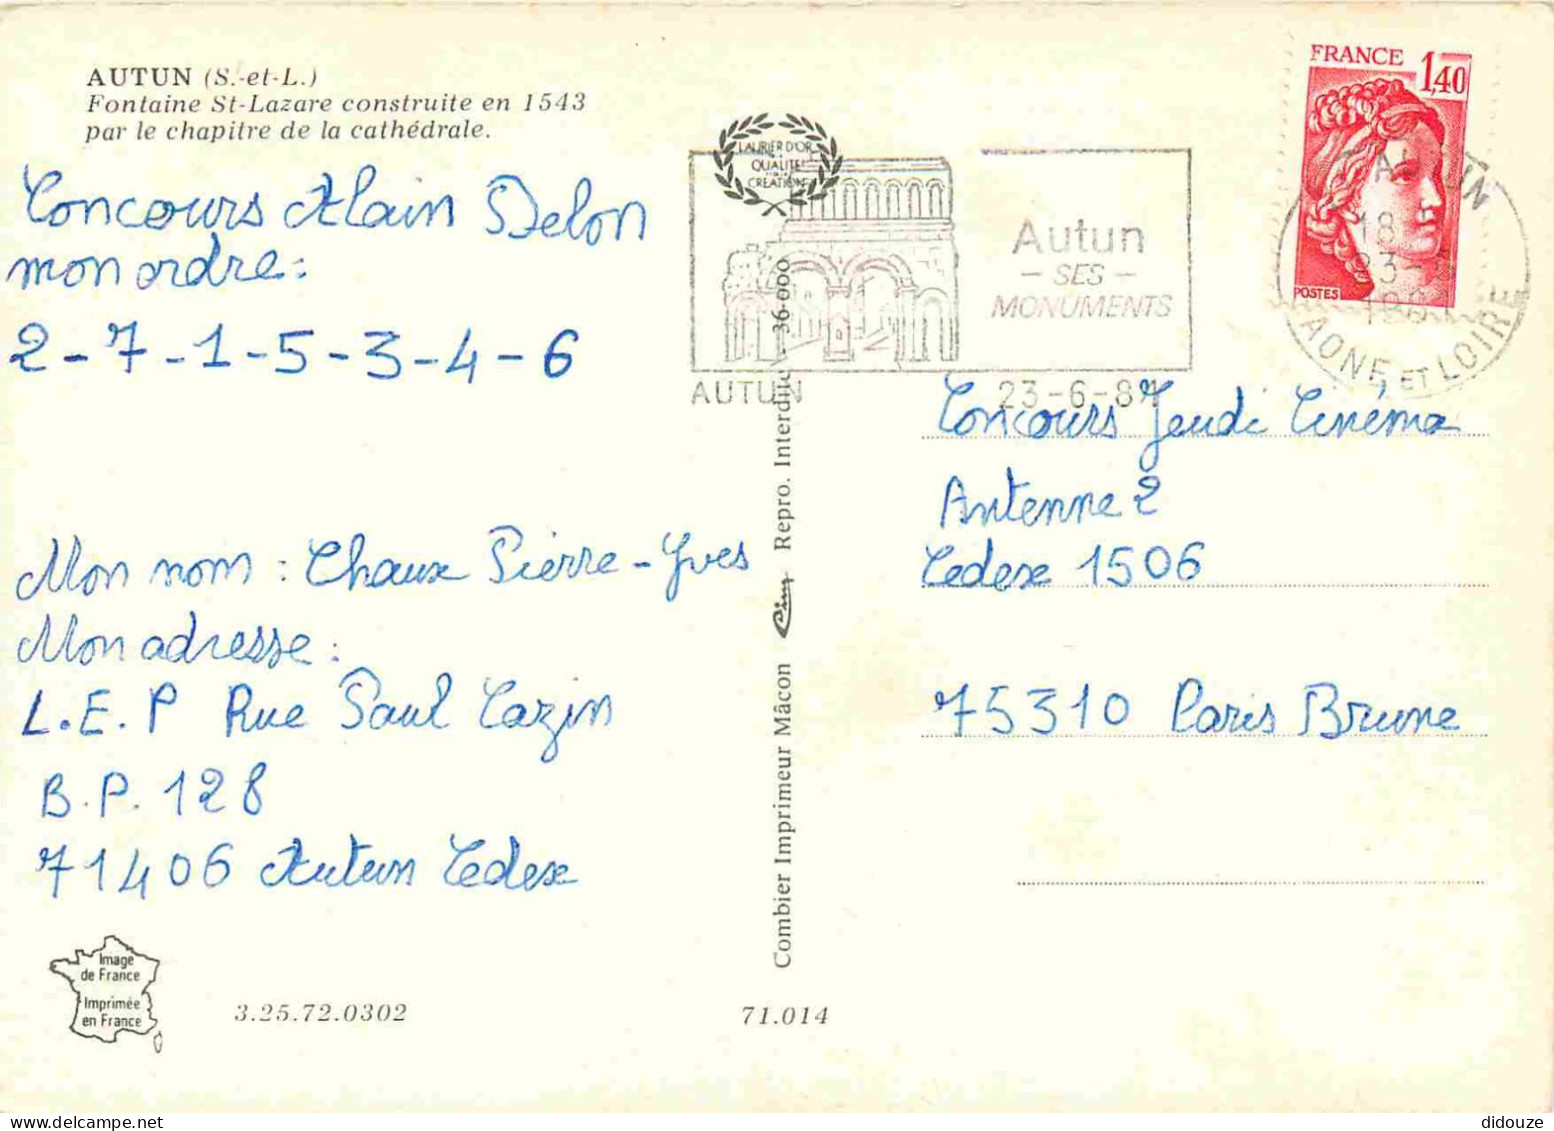 AUTUN (S.-et-L.)
Fontaine St-Lazare construite en 1543
par le chapitre de la cathédrale.
Concours Alain Delon
mon ordre :
2-7-1-5-3-4-6
Mon nom : Chaux Pierre-Yves
Mon adresse :
L.E.P Rue Paul Cazin
B.P. 128
71406 Autun Cedex
Image
de France
Imprimée
en France
3.25.72.0302
71.014
LAURIER D'OR
QUALITE
CREATION
Autun
- SES -
MONUMENTS
AUTUN
23-6-81
36-000
Combier Imprimeur Mâcon Cim Repro. Interdite
FRANCE 1,40
POSTES
AUTUN
18
23-6
SAONE ET LOIRE
Concours Jeudi Cinéma
Antenne 2
Cedex 1506
75310 Paris Brune
didouze